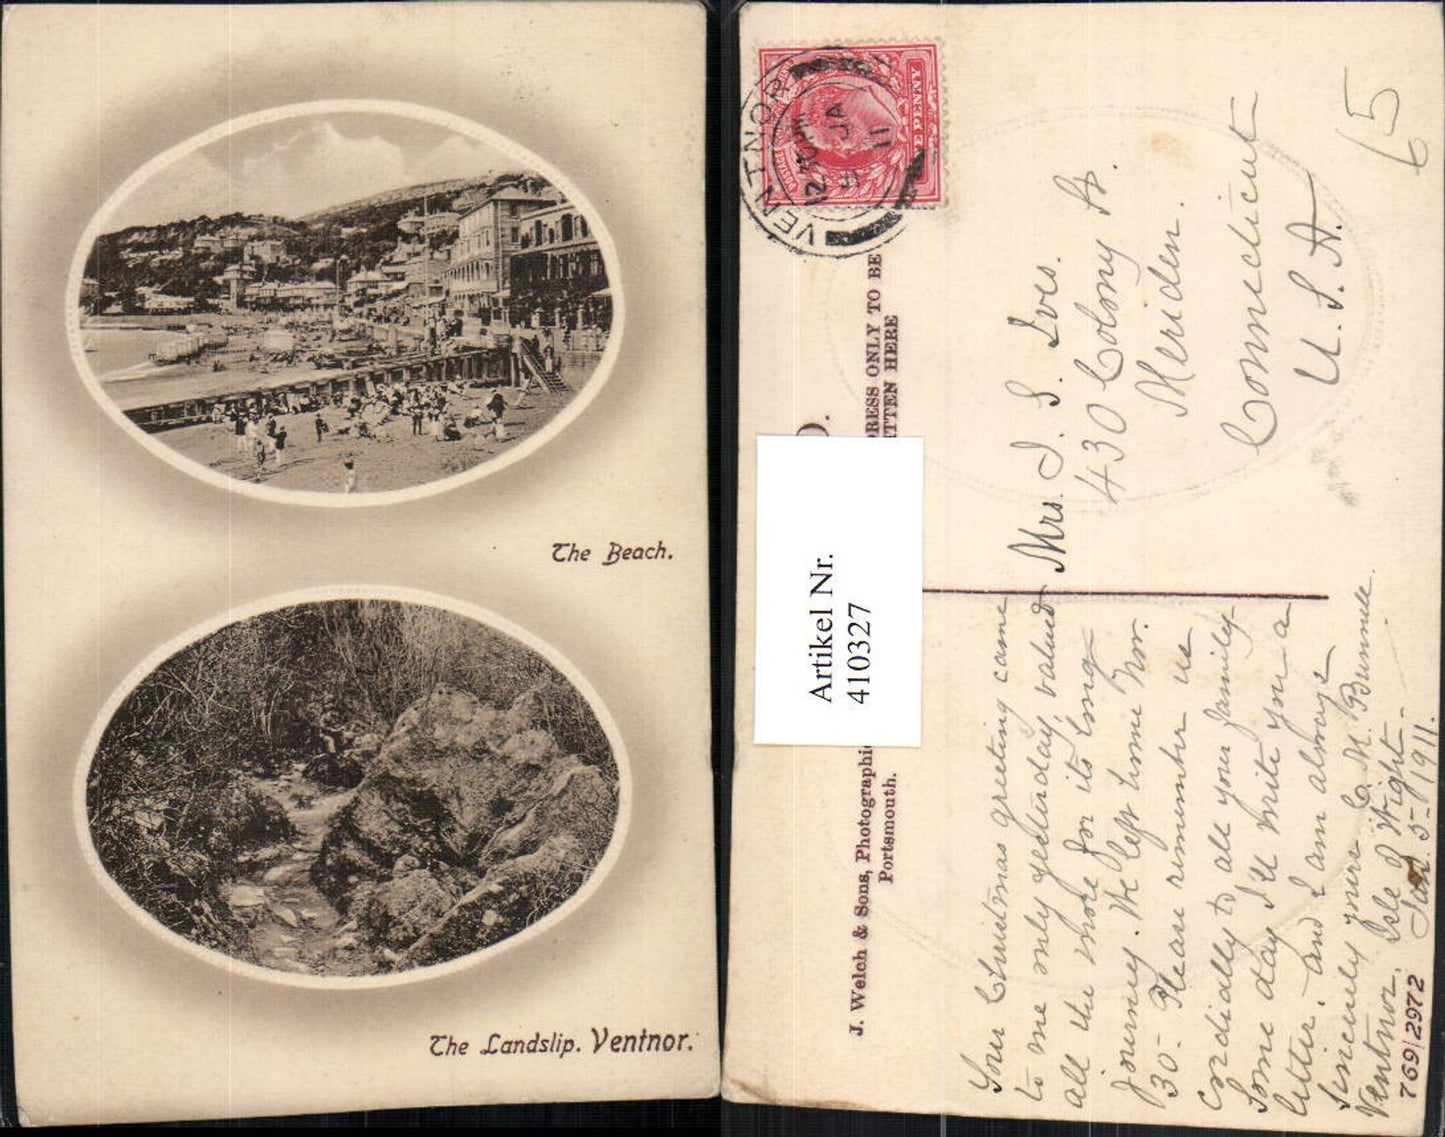 The Beach.
The Landslip. Ventnor.
VENTNOR
12.30 PM
5 JA
11
POSTAGE
ONE PENNY
D.
DRESS ONLY TO BE
ITTEN HERE
Artikel Nr.
410327
J. Welch & Sons, Photographic
Portsmouth.
Your Christmas greeting came
to me only yesterday, valued
all the more for its long
journey. We left home Nov.
30- Please remember us
cordially to all your family-
Some day I'll write you a
letter, and I am always
Sincerely yours C. M. Bunnell.
Ventnor, Isle of Wight-
Jan. 5- 1911.
769/2972
Mrs. I. S. Ives.
430 Colony St.
Meriden.
Connecticut
U. S. A.
65